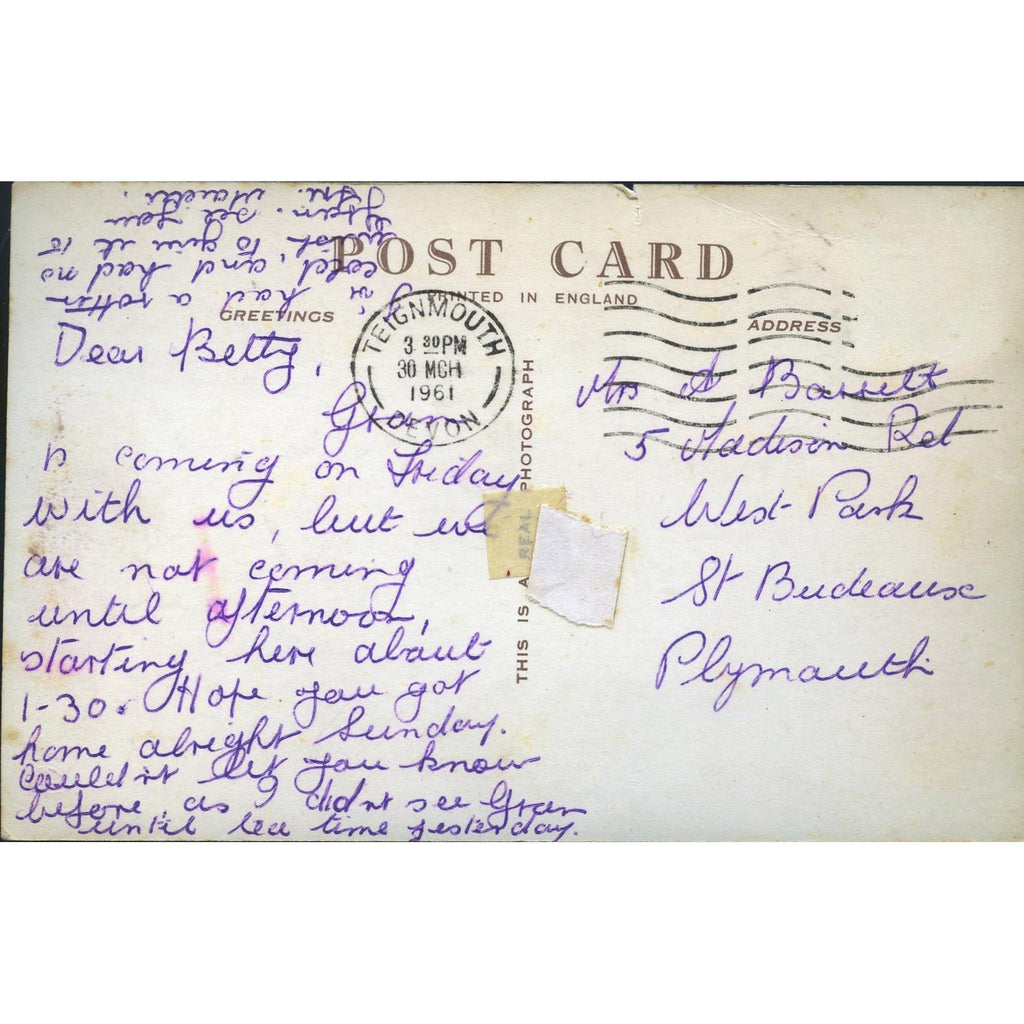 POST CARD
PRINTED IN ENGLAND
GREETINGS
ADDRESS
TEIGNMOUTH
3 30PM
30 MCH
1961
DEVON
Dear Betty,
Gran
is coming on Friday
with us, but we
are not coming
until afternoon,
starting here about
1-30. Hope you got
home alright Sunday.
Couldn't let you know
before, as I didnt see Gran
until tea time yesterday.
I've had a rotten
cold, and had no
to give it to
Gran. See you
Fri.
THIS IS A REAL PHOTOGRAPH
Mrs A Barrett
5 Madison Rd
West Park
St Budeaux
Plymouth